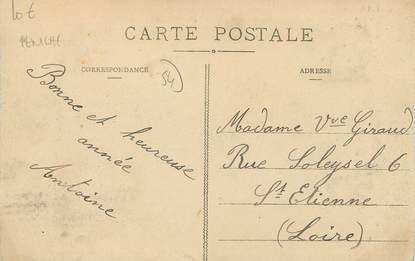 Lot
PENICHE
CARTE POSTALE
CORRESPONDANCE
54
ADRESSE
Bonne et heureuse
année
Antoine
Madame Vve Giraud
Rue Soleysel 6
St Etienne
(Loire)